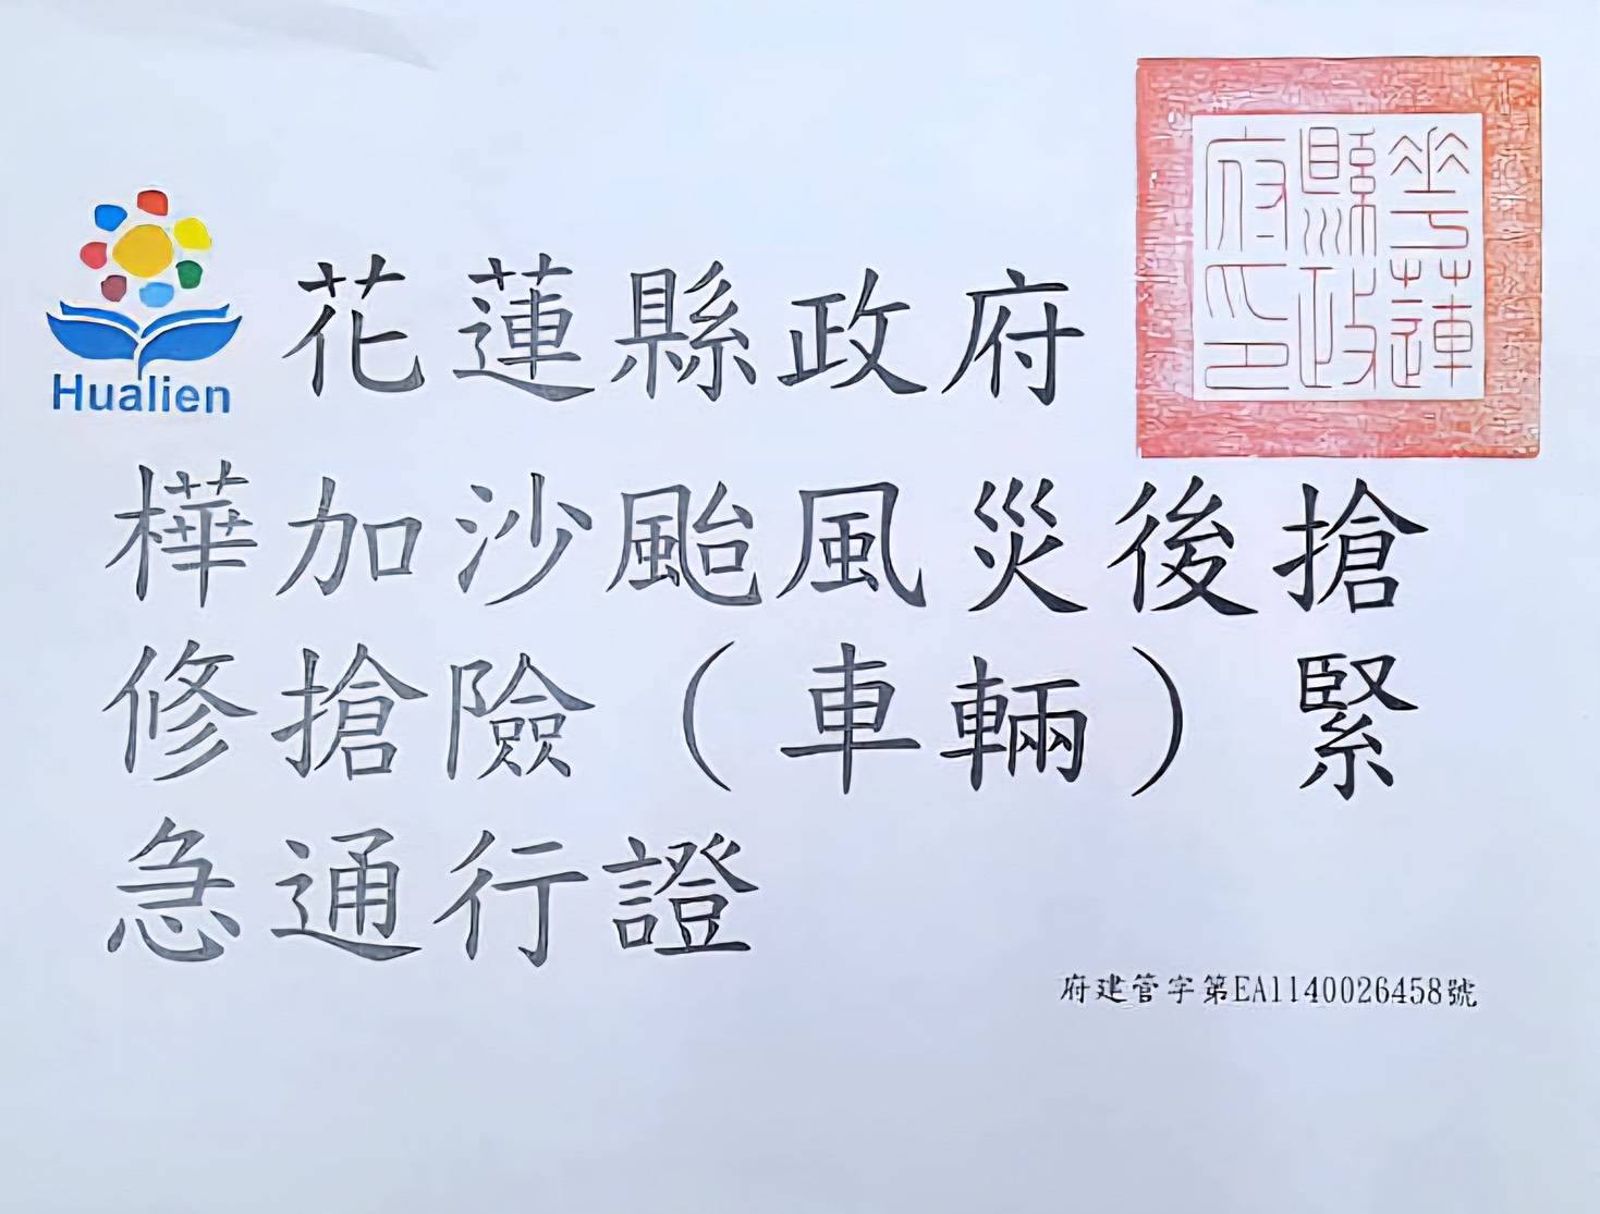 Hualien
花蓮縣政府
華蓮縣政府印
樺加沙颱風災後搶
修搶險(車輛)緊
急通行證
府建管字第EA1140026458號